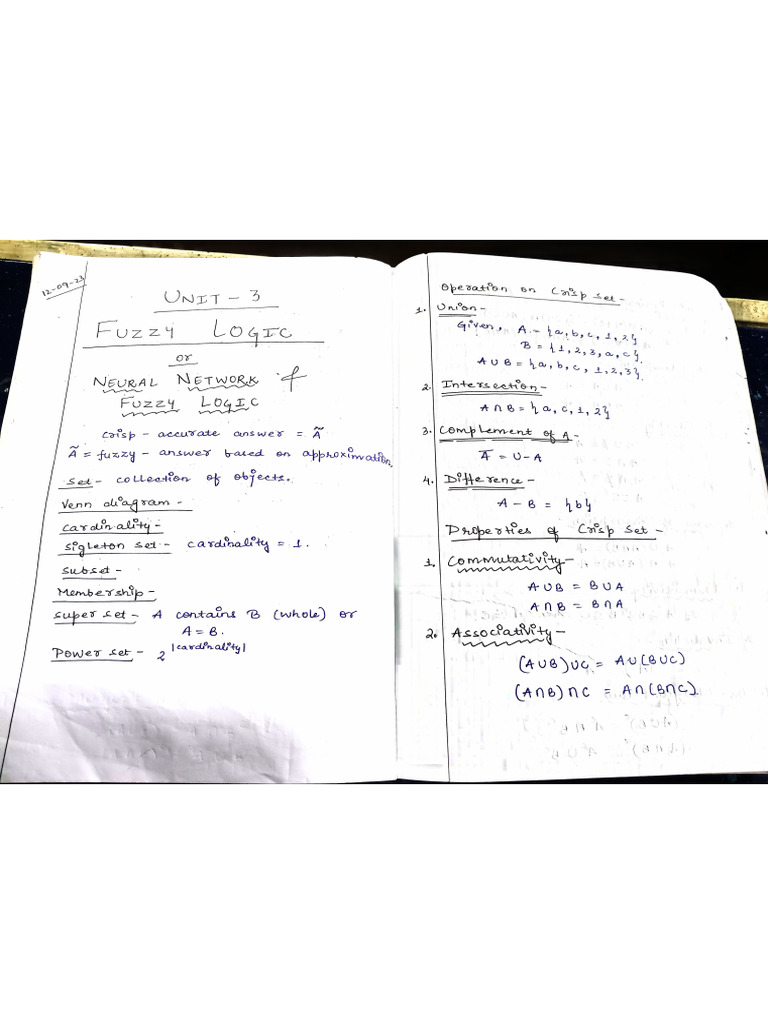 12-09-23
UNIT - 3
FUZZY LOGIC
or
NEURAL NETWORK &
FUZZY LOGIC
crisp - accurate answer = Ã
Ã = fuzzy - answer based on approximation.
Set - collection of objects.
Venn diagram -
Cardinality -
Sigleton set - cardinality = 1.
Subset -
Membership -
Super set - A contains B (whole) or
A = B.
Power set - 2^|cardinality|
Operation on Crisp set -
1. Union -
Given, A = {a, b, c, 1, 2}
B = {1, 2, 3, a, c}
A ∪ B = {a, b, c, 1, 2, 3}
2. Intersection -
A ∩ B = {a, c, 1, 2}
3. Complement of A -
A̅ = U - A
4. Difference -
A - B = {b}
Properties of Crisp Set -
1. Commutativity -
A ∪ B = B ∪ A
A ∩ B = B ∩ A
2. Associativity -
(A ∪ B) ∪ C = A ∪ (B ∪ C)
(A ∩ B) ∩ C = A ∩ (B ∩ C)